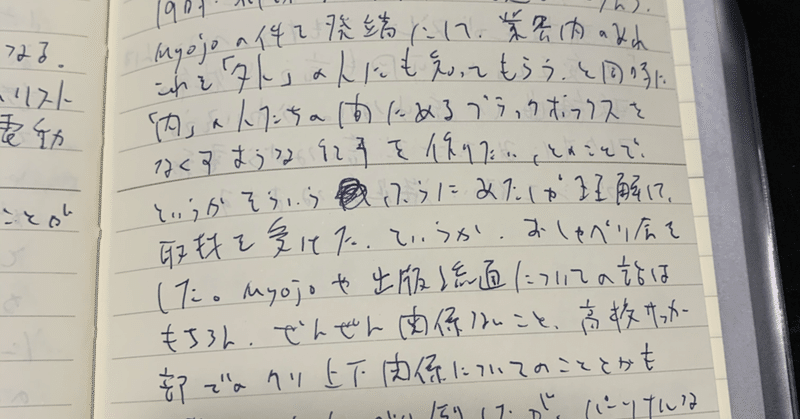 なる。
リスト
電動
ことが
myojoの件で発端にして、業界内のあれ
これを「外」の人にも知ってもらう、と同時に
「内」の人たちの間にあるブラックボックスを
なくすような記事を作りたい、とのことで、
というかそういうふうにあたしが理解して、
取材を受けた、というか、おしゃべり会を
した。myojoや出版流通についての話は
もちろん、ぜんぜん関係ないこと、高校サッカー
部での上下関係についてのこととかも